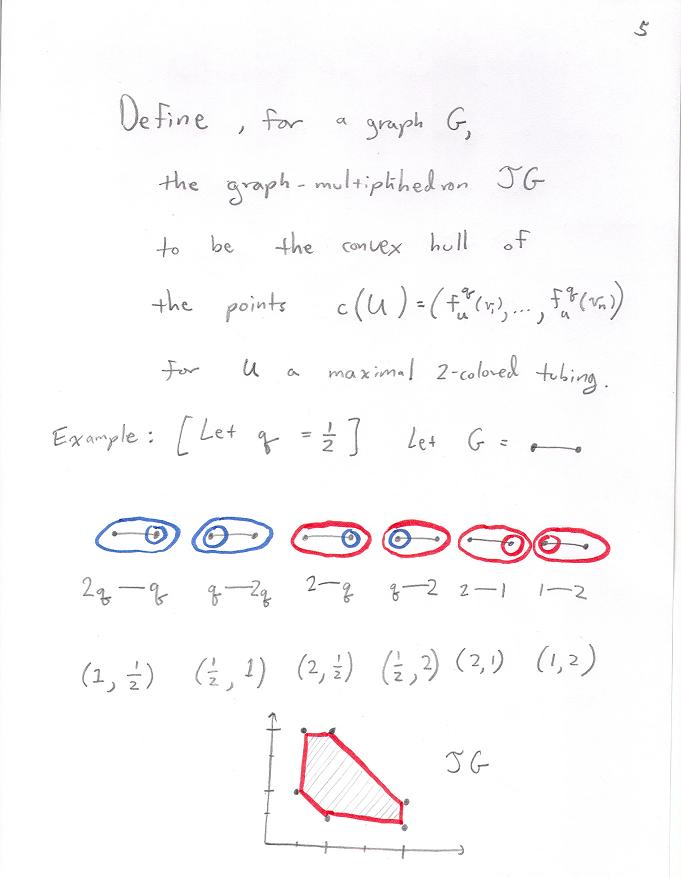 5
Define, for a graph G,
the graph-multiplihedron JG
to be the convex hull of
the points c(U) = (f_u^q(v_1), ..., f_u^q(v_n))
for U a maximal 2-colored tubing.
Example: [Let q = 1/2] Let G =
2q — q q — 2q 2 — q q — 2 2 — 1 1 — 2
(1, 1/2) (1/2, 1) (2, 1/2) (1/2, 2) (2, 1) (1, 2)
JG